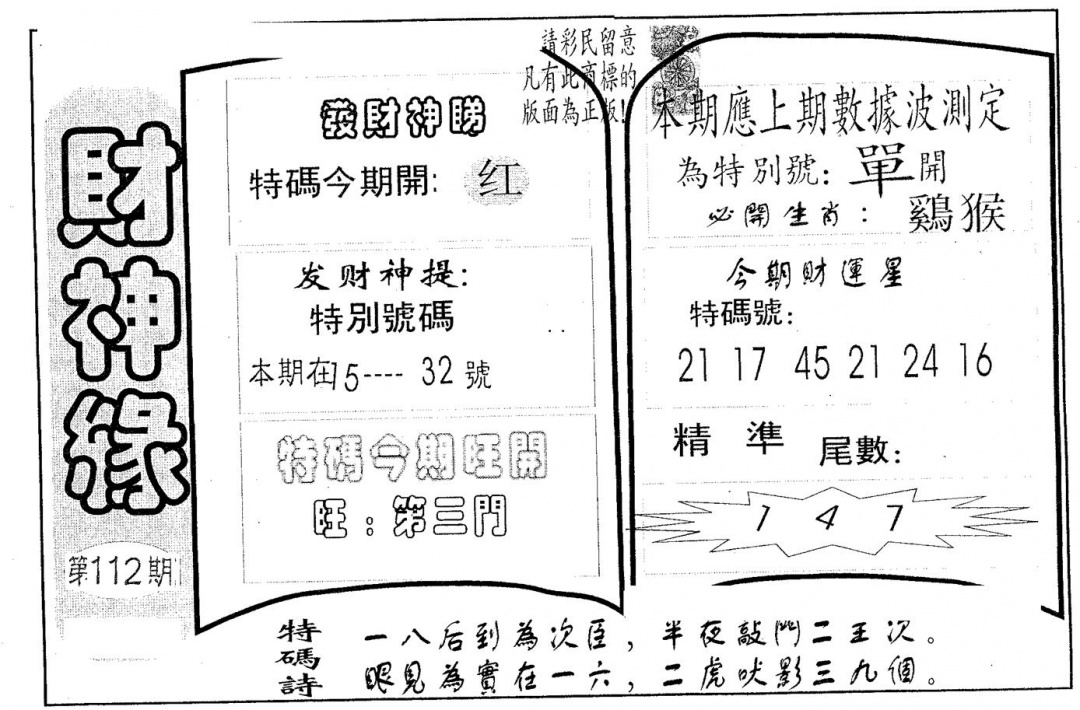 財神緣
第112期
請彩民留意
凡有此商標的
版面為正版!
發財神睇
特碼今期開: 红
发财神提:
特別號碼
本期在15---- 32號
特碼今期旺開
旺:第三門
本期應上期數據波測定
為特別號: 單開
必開生肖: 鷄猴
今期財運星
特碼號:
21 17 45 21 24 16
精準 尾數:
1 4 7
特碼詩
一八后到為次臣,半夜敲門二王次。
眼見為實在一六,二虎吠影三九個。